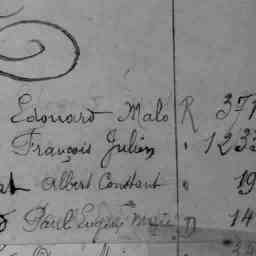 Edouard Malo R 371
François Julien " 1233
at Albert Constant " 19
Paul Eugène Marie D 14